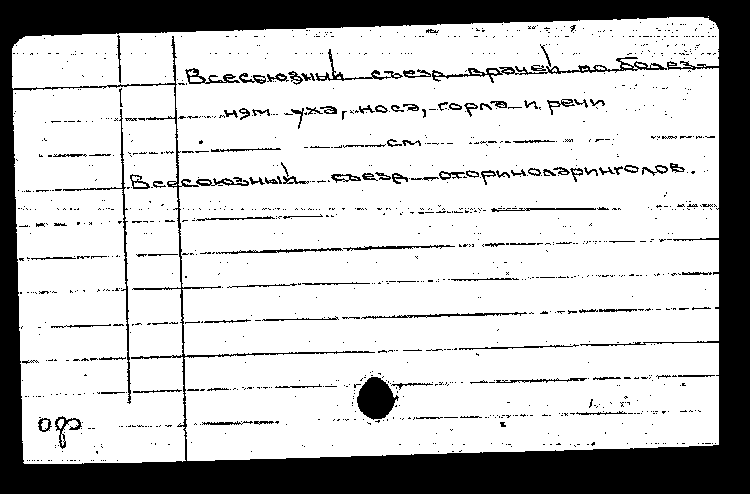 Всесоюзный съезд врачей по болез-
ням уха, носа, горла и речи
см
Всесоюзный съезд оториноларингологов.